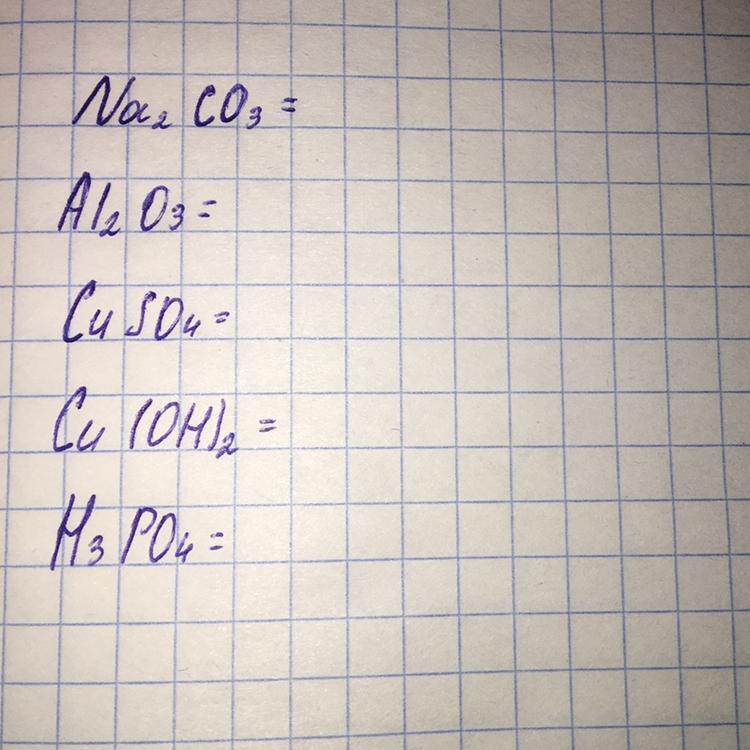 Na₂CO₃ =
Al₂O₃ =
CuSO₄ =
Cu(OH)₂ =
H₃PO₄ =